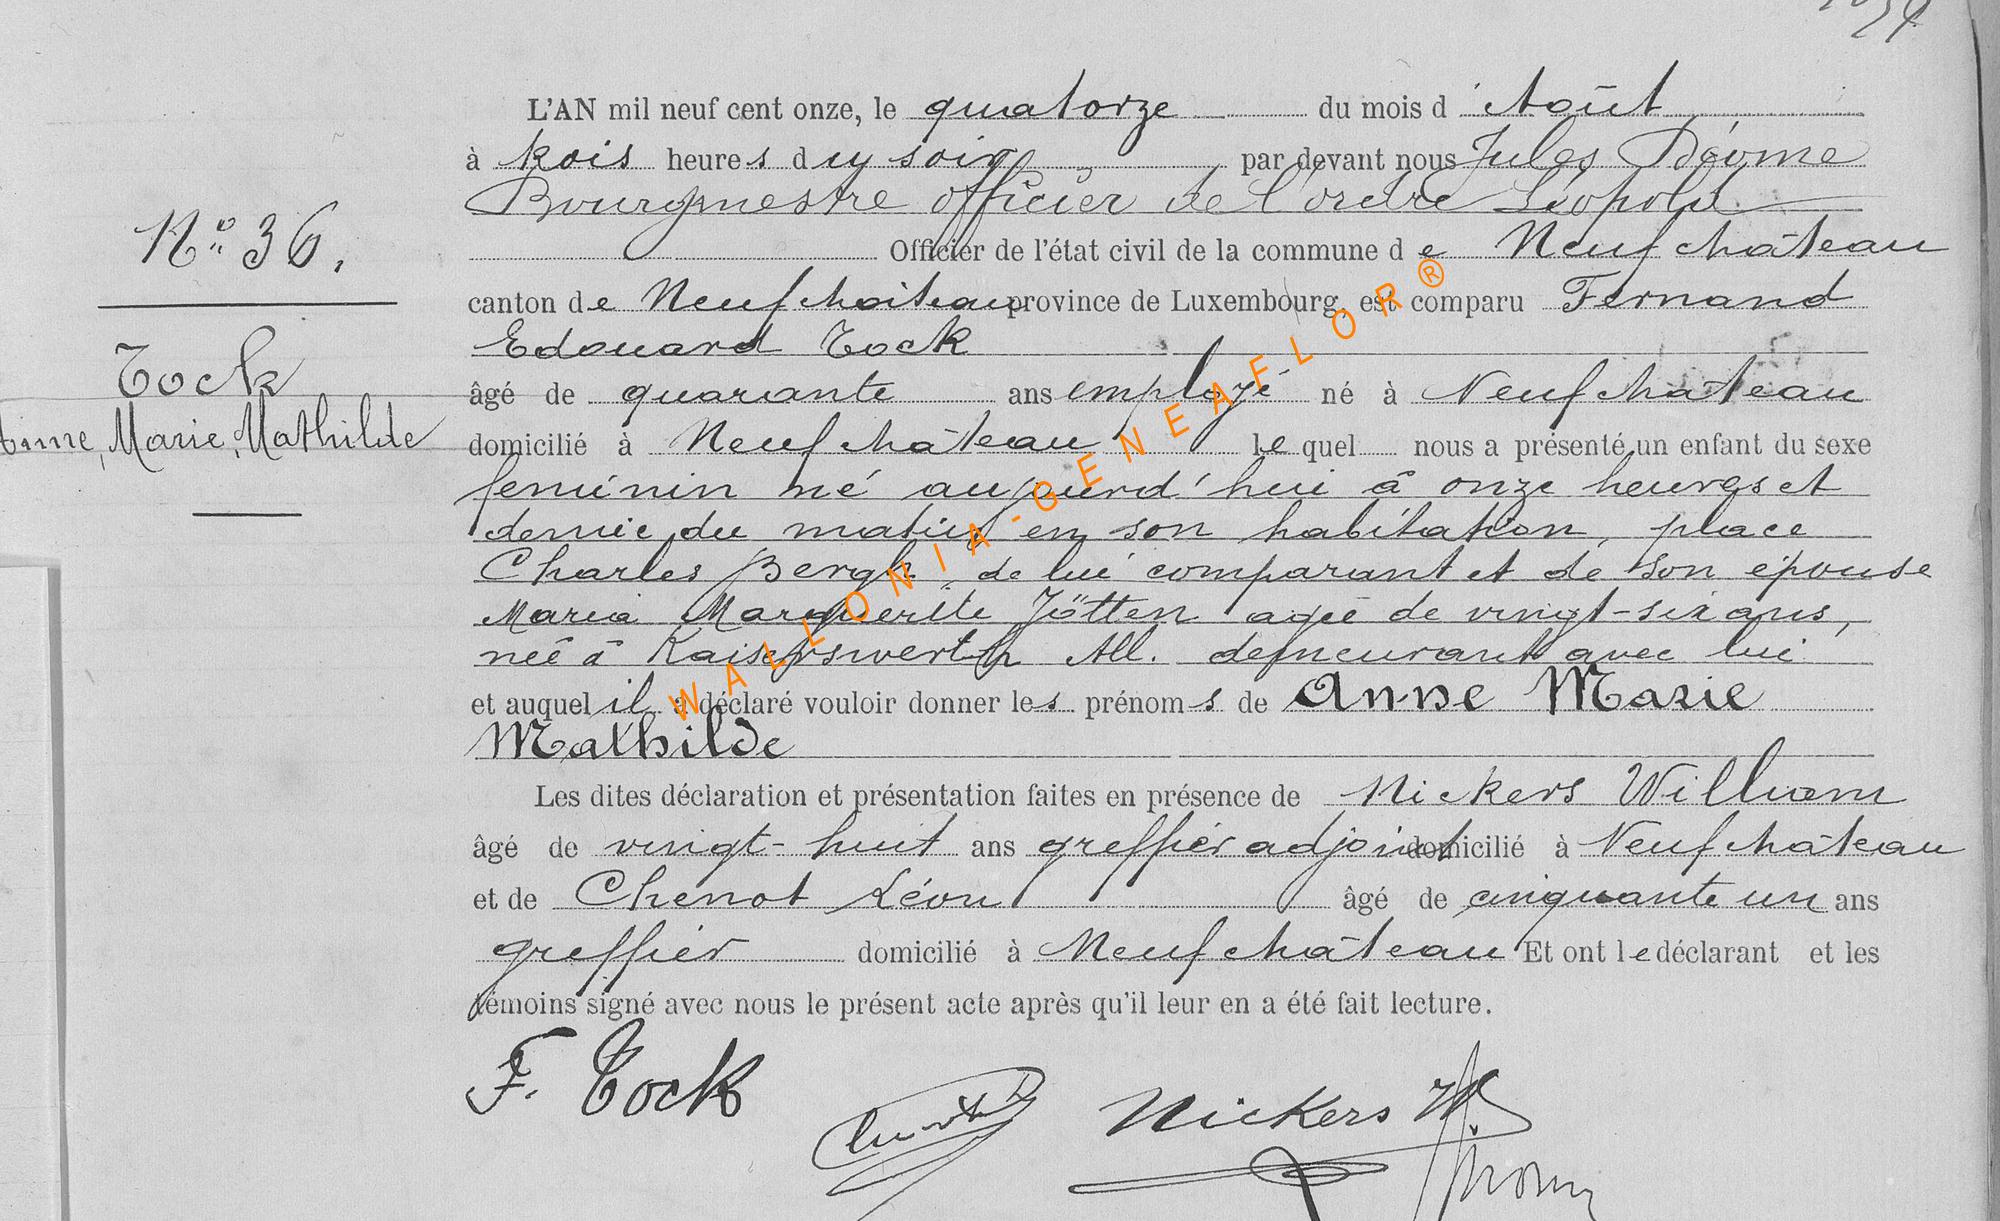 L'AN mil neuf cent onze, le quatorze du mois d'Août
à trois heures du soir par devant nous Jules
Bourgmestre officier de l'ordre Léopold
Officier de l'état civil de la commune de Neufchâteau
canton de Neufchâteau province de Luxembourg, est comparu Fernand
Edouard Tock
âgé de quarante ans employé né à Neufchâteau
domicilié à Neufchâteau lequel nous a présenté un enfant du sexe
feminin né aujourd'hui à onze heures et
demie du matin en son habitation, place
Charles Bergh, de lui comparant et de son épouse
Maria Marguerite Jötten agée de vingt-six ans,
née à Kaiserswerth All. demeurant avec lui
et auquel il a déclaré vouloir donner les prénoms de Anne Marie
Mathilde
Les dites déclaration et présentation faites en présence de Nickers William
âgé de vingt-huit ans greffier adjoint domicilié à Neufchâteau
et de Chenot Léon âgé de cinquante un ans
greffier domicilié à Neufchâteau Et ont le déclarant et les
témoins signé avec nous le présent acte après qu'il leur en a été fait lecture.
F. Tock
Nickers W
No 36.
Tock
Anne, Marie, Mathilde
WALLONIA-GENEAFLOR®